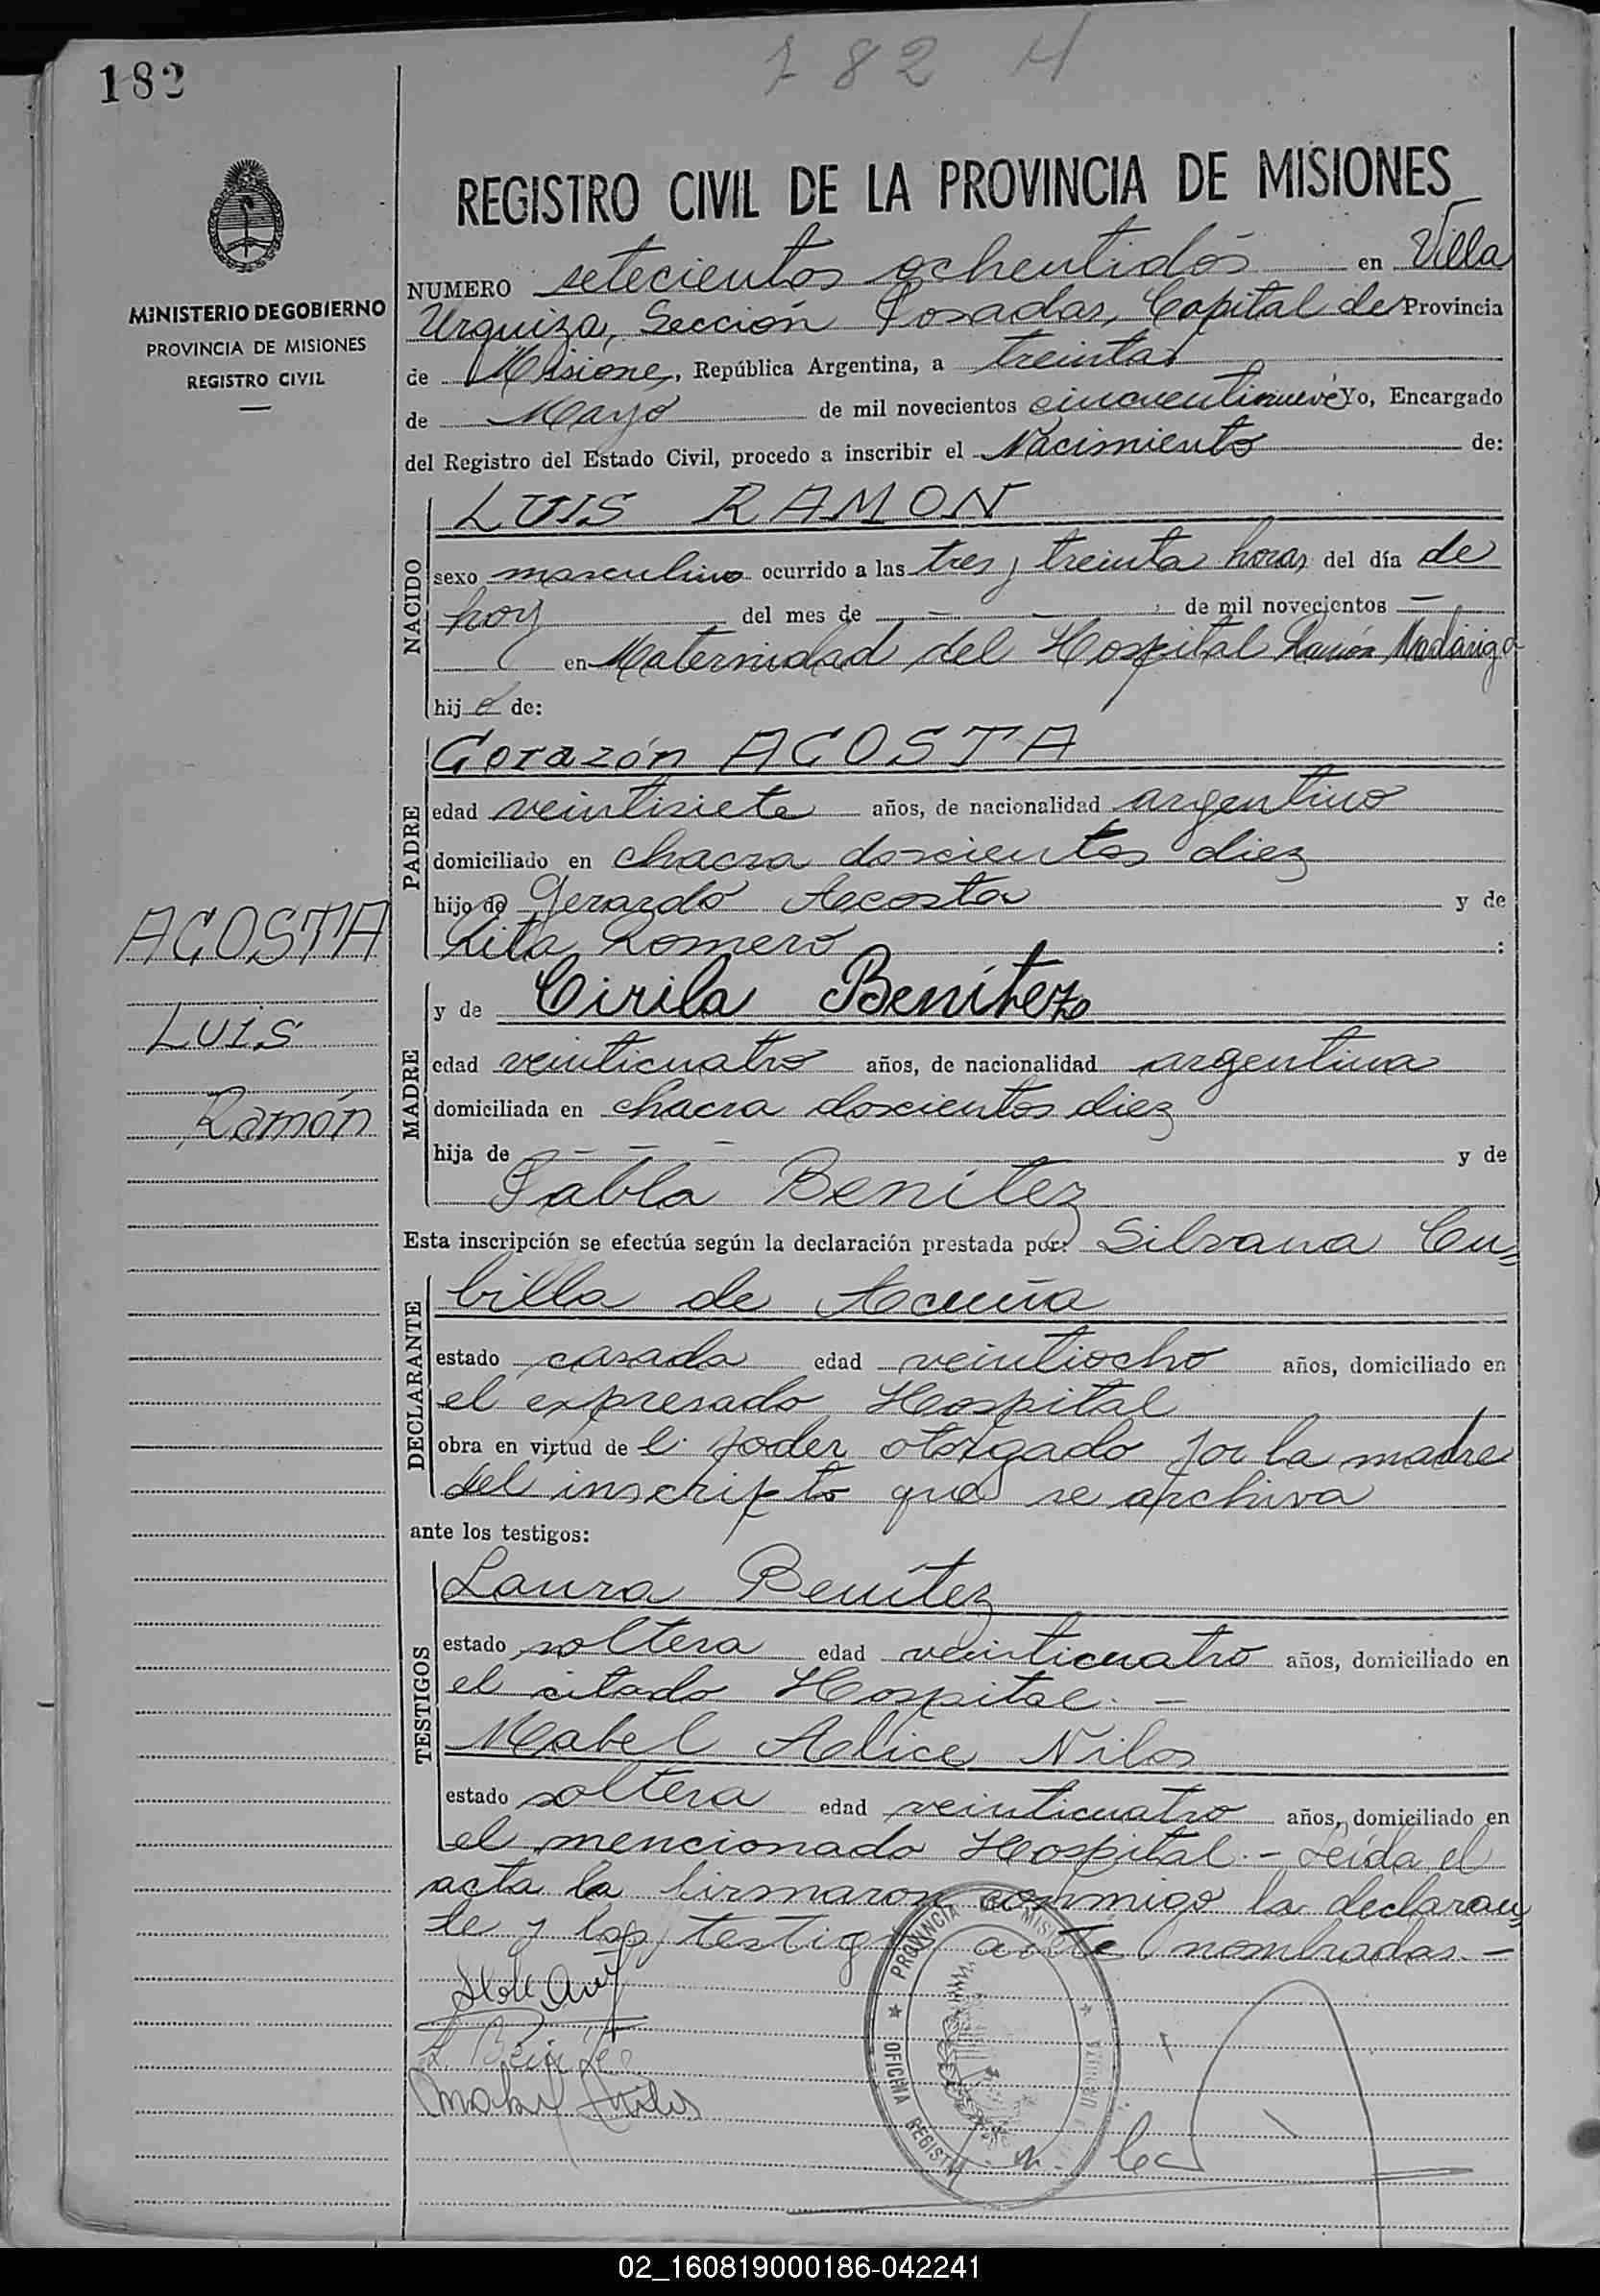 182
782 H
REGISTRO CIVIL DE LA PROVINCIA DE MISIONES
MINISTERIO DE GOBIERNO
PROVINCIA DE MISIONES
REGISTRO CIVIL
NUMERO setecientos ochentidós en Villa
Urquiza, Sección Posadas, Capital de Provincia
de Misiones, República Argentina, a treinta
de Mayo de mil novecientos cincuentinueve Yo, Encargado
del Registro del Estado Civil, procedo a inscribir el Nacimiento de:
NACIDO
LUIS RAMON
sexo masculino ocurrido a las tres y treinta horas del día de
hoy del mes de — — de mil novecientos —
en Maternidad del Hospital Ramón Madariaga
hijo de:
PADRE
Corazón ACOSTA
edad veintisiete años, de nacionalidad argentino
domiciliado en chacra doscientos diez
hijo de Gerardo Acosta y de
Rita Romero :
ACOSTA
Luis
Ramón
MADRE
y de Cirila Benítez
edad veinticuatro años, de nacionalidad argentina
domiciliada en chacra doscientos diez
hija de — — — y de
Pabla Benítez
Esta inscripción se efectúa según la declaración prestada por: Silvana Cu=
DECLARANTE
billa de Acuña
estado casada edad veintiocho años, domiciliado en
el expresado Hospital
obra en virtud de el poder otorgado por la madre
del inscripto que se archiva
ante los testigos:
TESTIGOS
Laura Benítez
estado soltera edad veinticuatro años, domiciliado en
el citado Hospital. —
Mabel Alice Nilos
estado soltera edad veinticuatro años, domiciliado en
el mencionado Hospital. - Leída el
acta la firmaron conmigo la declaran=
te y los testigos ante nombradas. —
PROVINCIA DE MISIONES
OFICINA REGISTRO
02_160819000186-042241